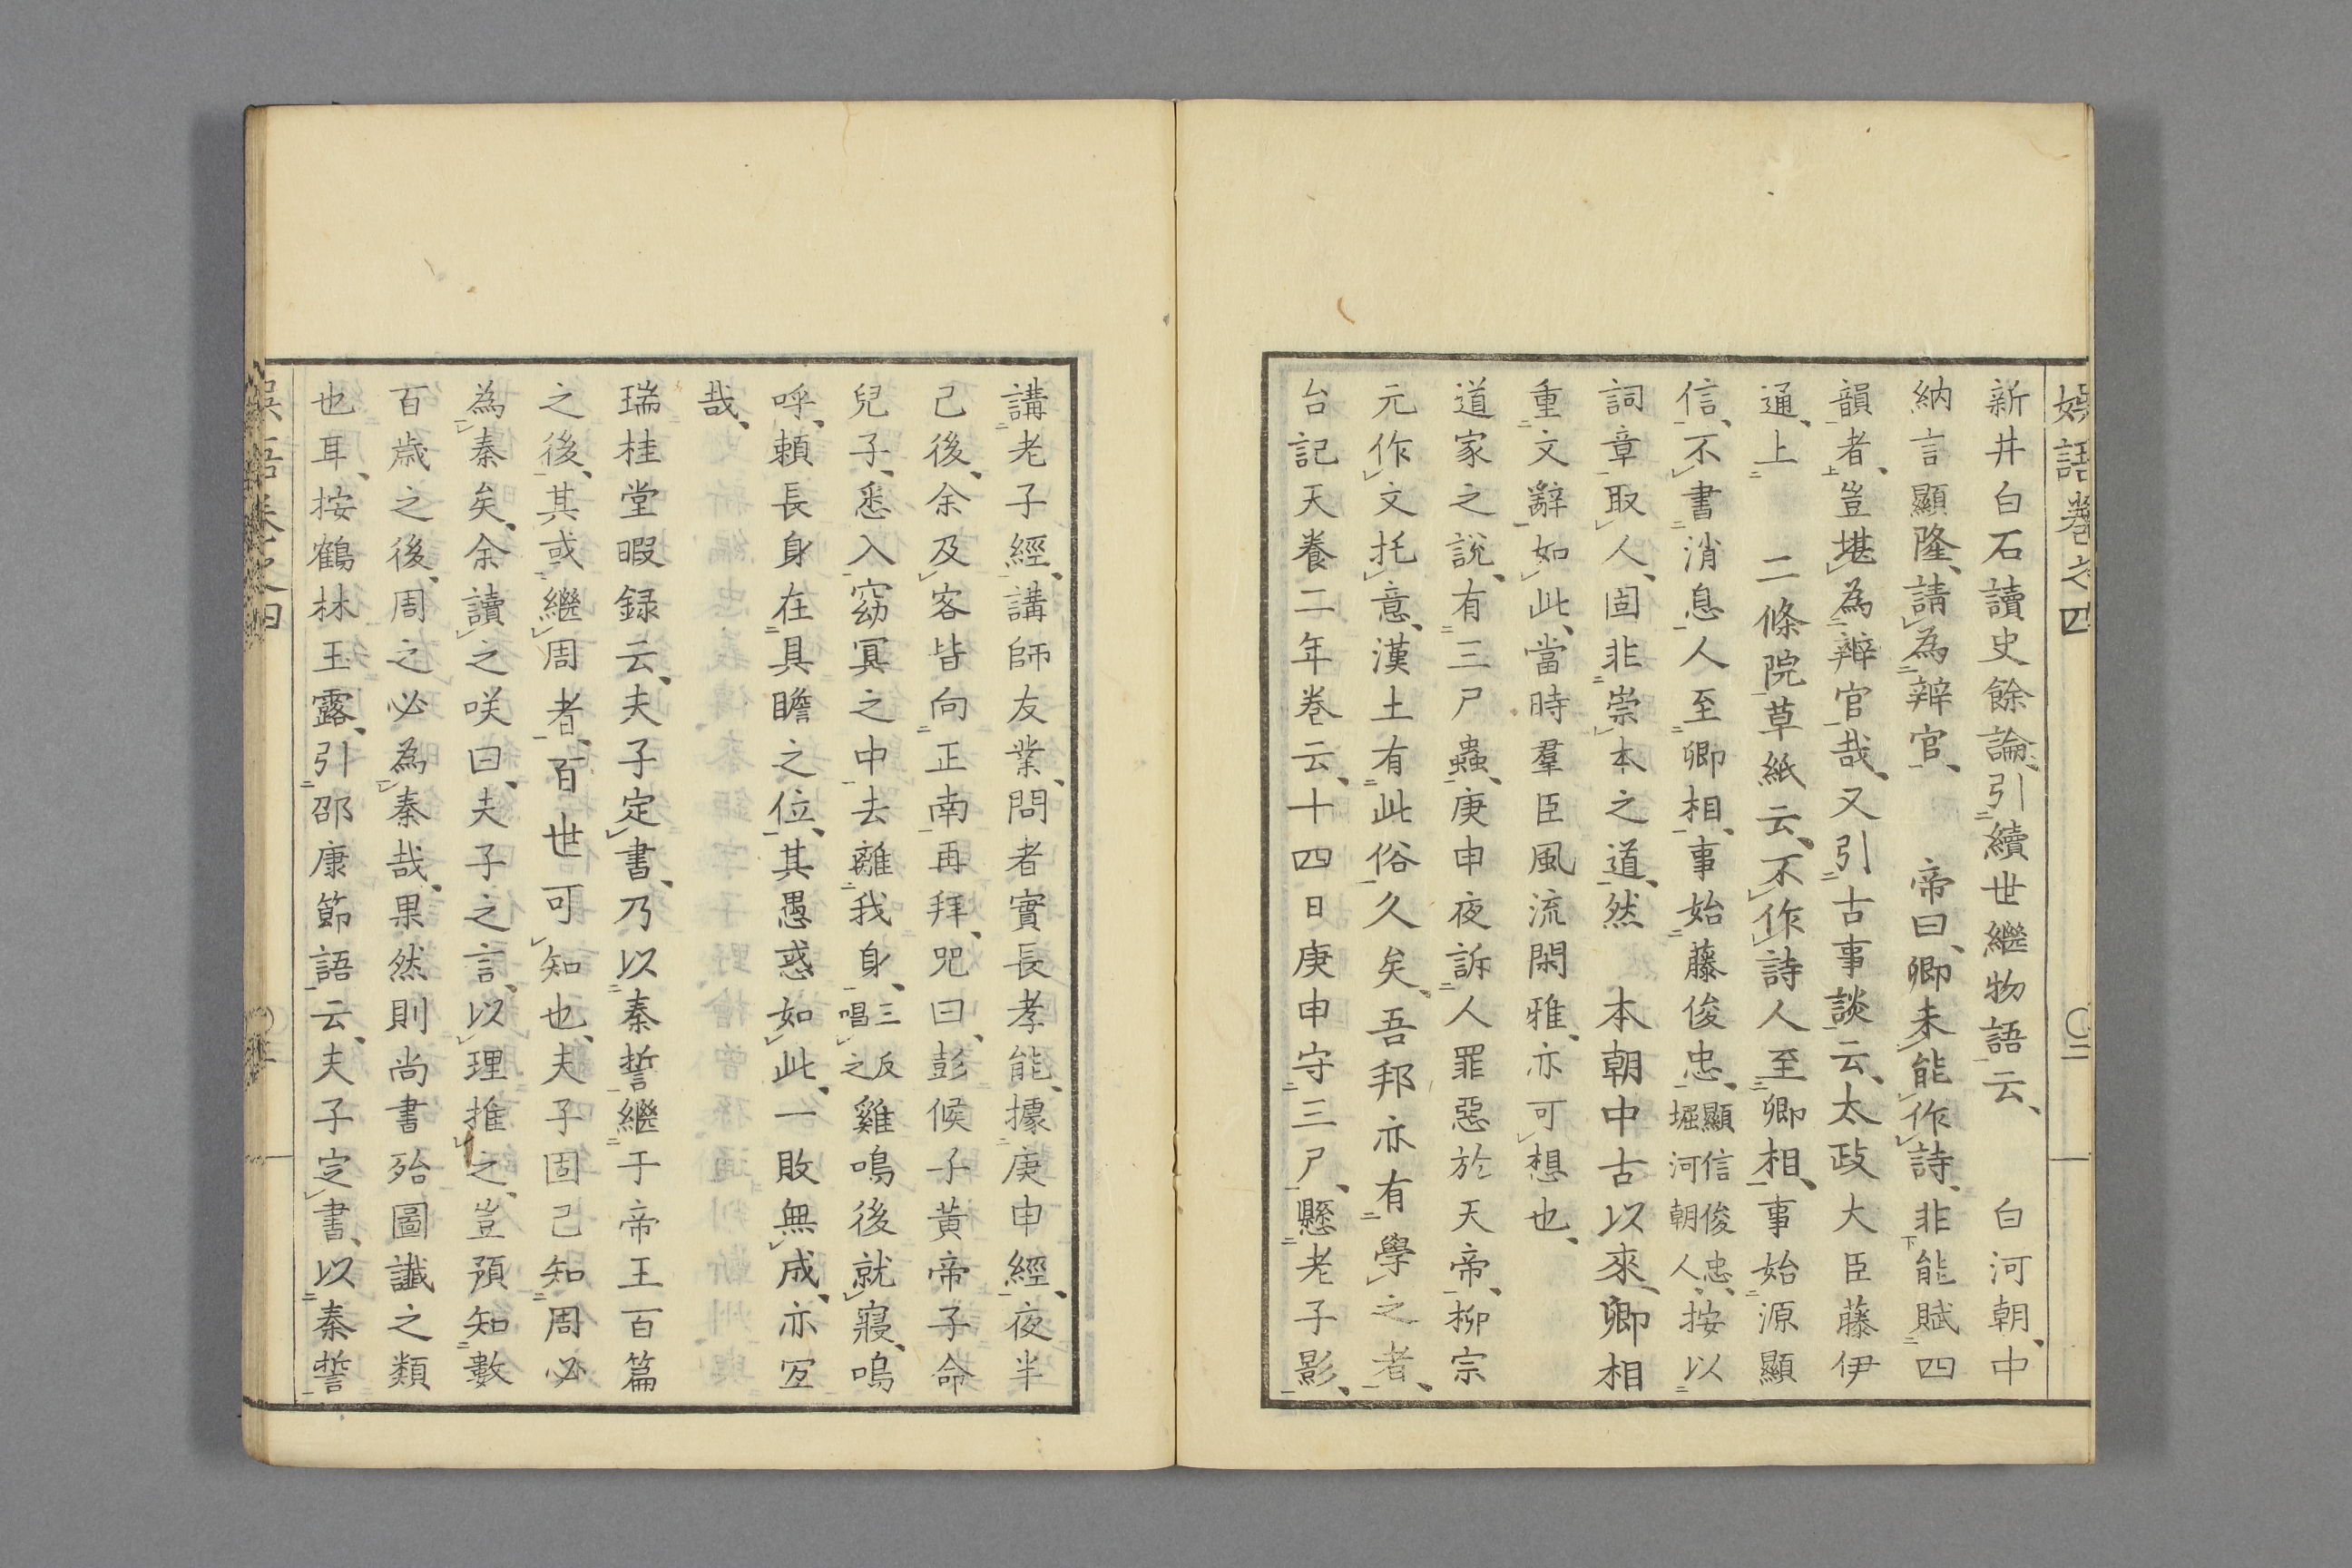 娯語巻之四
新井白石讀史餘論、引續世繼物語云、白河朝、中
納言顯隆、請為辨官、帝曰、卿未能作詩、非能賦四
韻者、豈堪為辨官哉、又引古事談云、太政大臣藤伊
通、上二條院草紙云、不作詩人至卿相、事始源顯
信、不書消息人至卿相、事始藤俊忠、顯信俊忠、堀河朝人、按以
詞章取人、固非崇本之道、然本朝中古以來、卿相
重文辭如此、當時羣臣風流閑雅、亦可想也、
道家之說、有三尸蟲、庚申夜訴人罪惡於天帝、柳宗
元作文托意、漢土有此俗久矣、吾邦亦有學之者、
台記天養二年巻云、十四日庚申守三尸、懸老子影、
講老子經、講師友業、問者實長孝能、據庚申經、夜半
己後、余及客皆向正南再拜、咒曰、彭候子黃帝子命
兒子、悉入窈冥之中去離我身、三反唱之雞鳴後就寢、嗚
呼、賴長身在具瞻之位、其愚惑如此、一敗無成、亦宜
哉、
瑞桂堂暇録云、夫子定書、乃以秦誓繼于帝王百篇
之後、其或繼周者、百世可知也、夫子固己知周必
為秦矣、余讀之咲曰、夫子之言、以理推之、豈預知數
百歳之後、周之必為秦哉、果然則尚書殆圖讖之類
也耳、按鶴林玉露、引邵康節語云、夫子定書、以秦誓